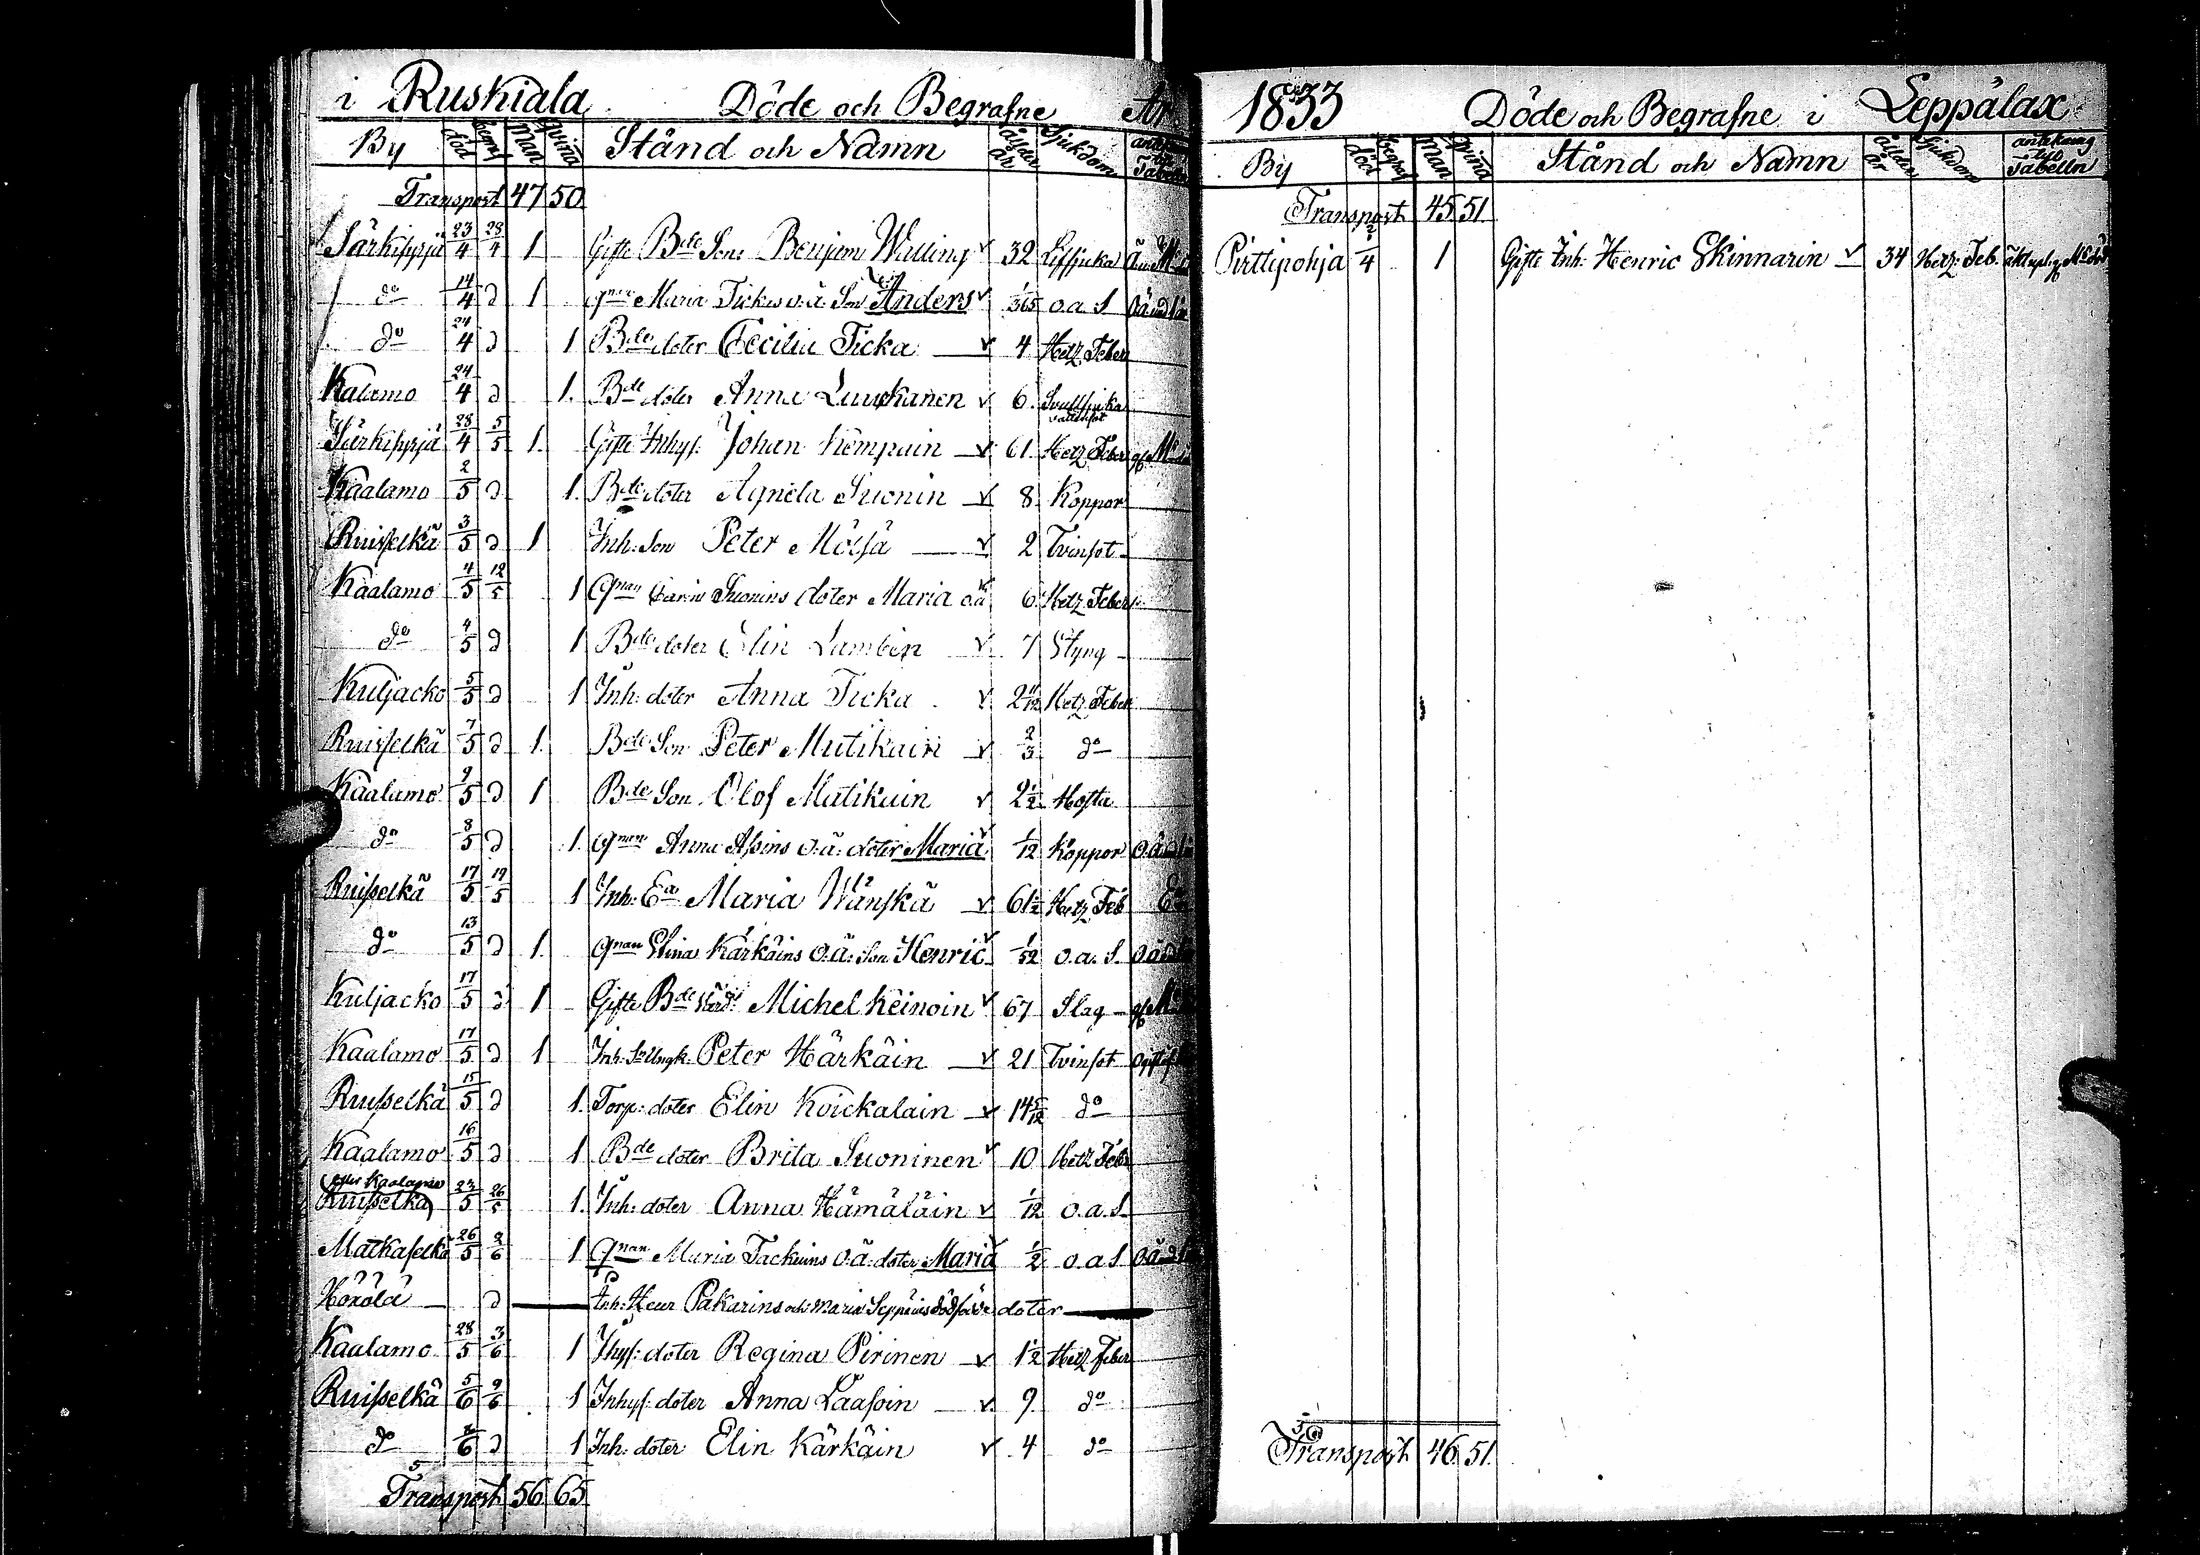 i Ruskiala Döde och Begrafne År
By död begr. Man qvinna Stånd och Namn ålder år Sjukdom Tabelln
Transport 47 50
Särkisyrjä 23/4 28/4 1 Gifte Bde Son Benjam Walling 32
do 14/4 d 1 qnan Maria Tickas o.ä. Son Anders 1/365 o.a.S
do 24/4 d 1 Bde doter Cecilia Ticka 4 Hetz Feber
Kalamo 24/4 d 1. Bde doter Anna Luukanen 6.
Särkisyrjä 28/4 5/5 1. Gifte Inhys: Johan Kempain 61 Hetz Feber
Kaalamo 2/5 d 1. Bde doter Agneta Suonin 8 Koppor
Ruisselkä 3/5 d 1 Inh: Son Peter Mölsä 2 Tvinsot
Kaalamo 4/5 12/5 1 Qnan Carin Suonins doter Maria o.ä 6 Hetz Feber
do 4/5 d 1 Bde doter Elin Lambin 7 Styng
Kuljacko 5/5 d 1 Inh: doter Anna Ticka 2 11/12 Hetz Feber
Ruisselkä 7/5 d 1. Bde Son Peter Mutikain 2/3 do
Kaalamo 9/5 d 1 Bde Son Olof Mutikain 2 1/2 Hosta
do 8/5 d 1. Qnan Anna Assins o.ä: doter Maria 1/12 Koppor
Ruisselkä 17/5 19/5 1 Inh: Ea Maria Wänskä 61 1/2 Hetz Feb
do 13/5 d 1. Qnan Stina Kärkäins o.ä: Son Henric 1/52 o.a.S.
Kuljacko 17/5 d 1 Gifte Bde Michel Keinoin 67 Slag
Kaalamo 17/5 d 1 Inh: Peter Härkäin 21 Tvinsot
Ruisselkä 15/5 d 1. Torp: doter Elin Koickalain 14 5/12 do
Kaalamo 16/5 d 1 Bde doter Brita Suoninen 10 Hetz Feb
eller Kaalamo
Ruisselkä 23/5 26/5 1. Inh: doter Anna Hämäläin 1/12 o.a.S.
Matkaselkä 26/5 2/6 1 Qnan Maria Tackuins o.ä: doter Maria 1/2 o.a.S
Hörölä d Inh: Henr Pakarins och Maria Seppäins dödfödde doter
Kaalamo 28/5 3/6 1 Ihys: doter Regina Pirinen 1 1/2 Hetz Feber
Ruisselkä 5/6 9/6 1 Inhys: doter Anna Laasoin 9 do
do d 1 Inh: doter Elin Kärkäin 4 do
Transport 56 65
1833 Döde och Begrafne i Leppälax
By död begraf Man qvina Stånd och Namn ålder år Sjukdom antekning till Tabelln
Transport 45 51
Pirttipohja 2/4 1 Gifte Inh: Henric Skinnarin 34 Hetz: Feb.
Transport 46 51